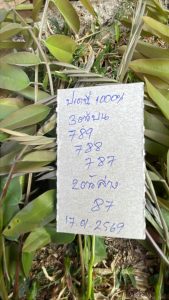 ปตท 1000%
3ตัวบน
789
788
787
2ตัวล่าง
87
17.9.2569